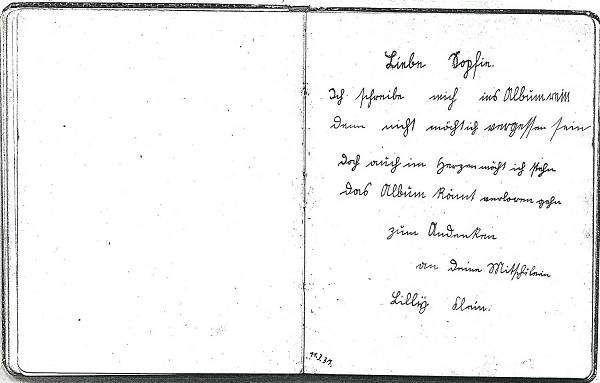 Liebe Sophie.
Ich schreibe mich ins Album rein
denn nicht möcht ich vergessen sein
doch auch im Herzen möcht ich stehn
das Album könnt verloren gehn
zum Andenken
an deine Mitschülerin
Lilly Klein.
11.3.31.